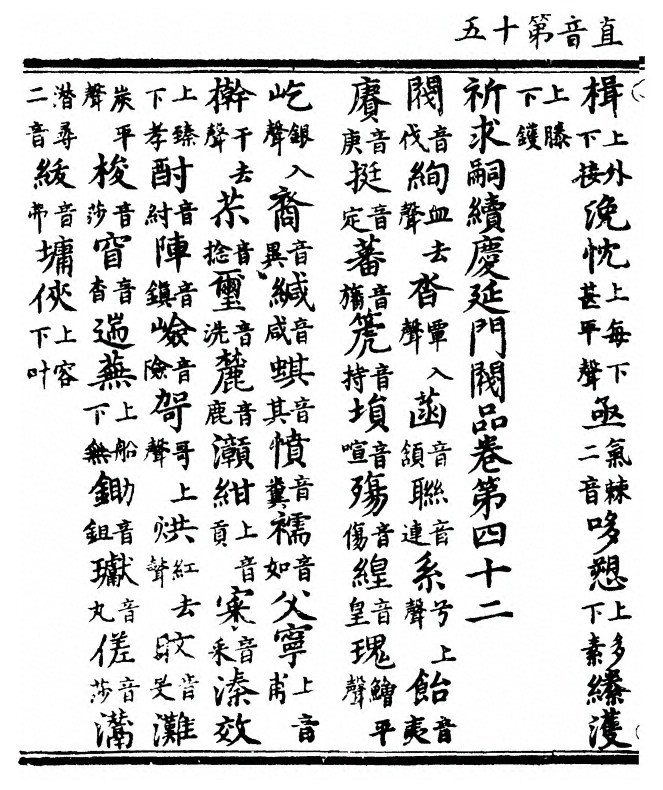 直音第十五
楫上外下接浼忱上每下甚平聲亟氣棘二音哆愬上多下素縧濩
上滕下鑊
祈求嗣續慶延門閥品卷第四十二
閥音伐絢血去聲沓覃入聲菡音頷聯音連系兮上聲飴音夷
賡音庚挺音定蕃音旛箎音持塤音喧殤音傷鍠音皇瑰鱠平聲
屹銀入聲裔音異緘音咸蜞音其憤音糞襦音如父寧上音甫
檊干去聲苶音捻璽音洗麓音鹿灝紺上音貢寀音采溱效
上臻下孝酎音紂陣音鎮嶮音險哿哥上聲烘紅去聲灘
炭平聲梭音莎窅音杳遄蕪上船下無鋤音鉏瓛音丸傞音莎灊
潛尋二音紱音弗墉俠上容下叶